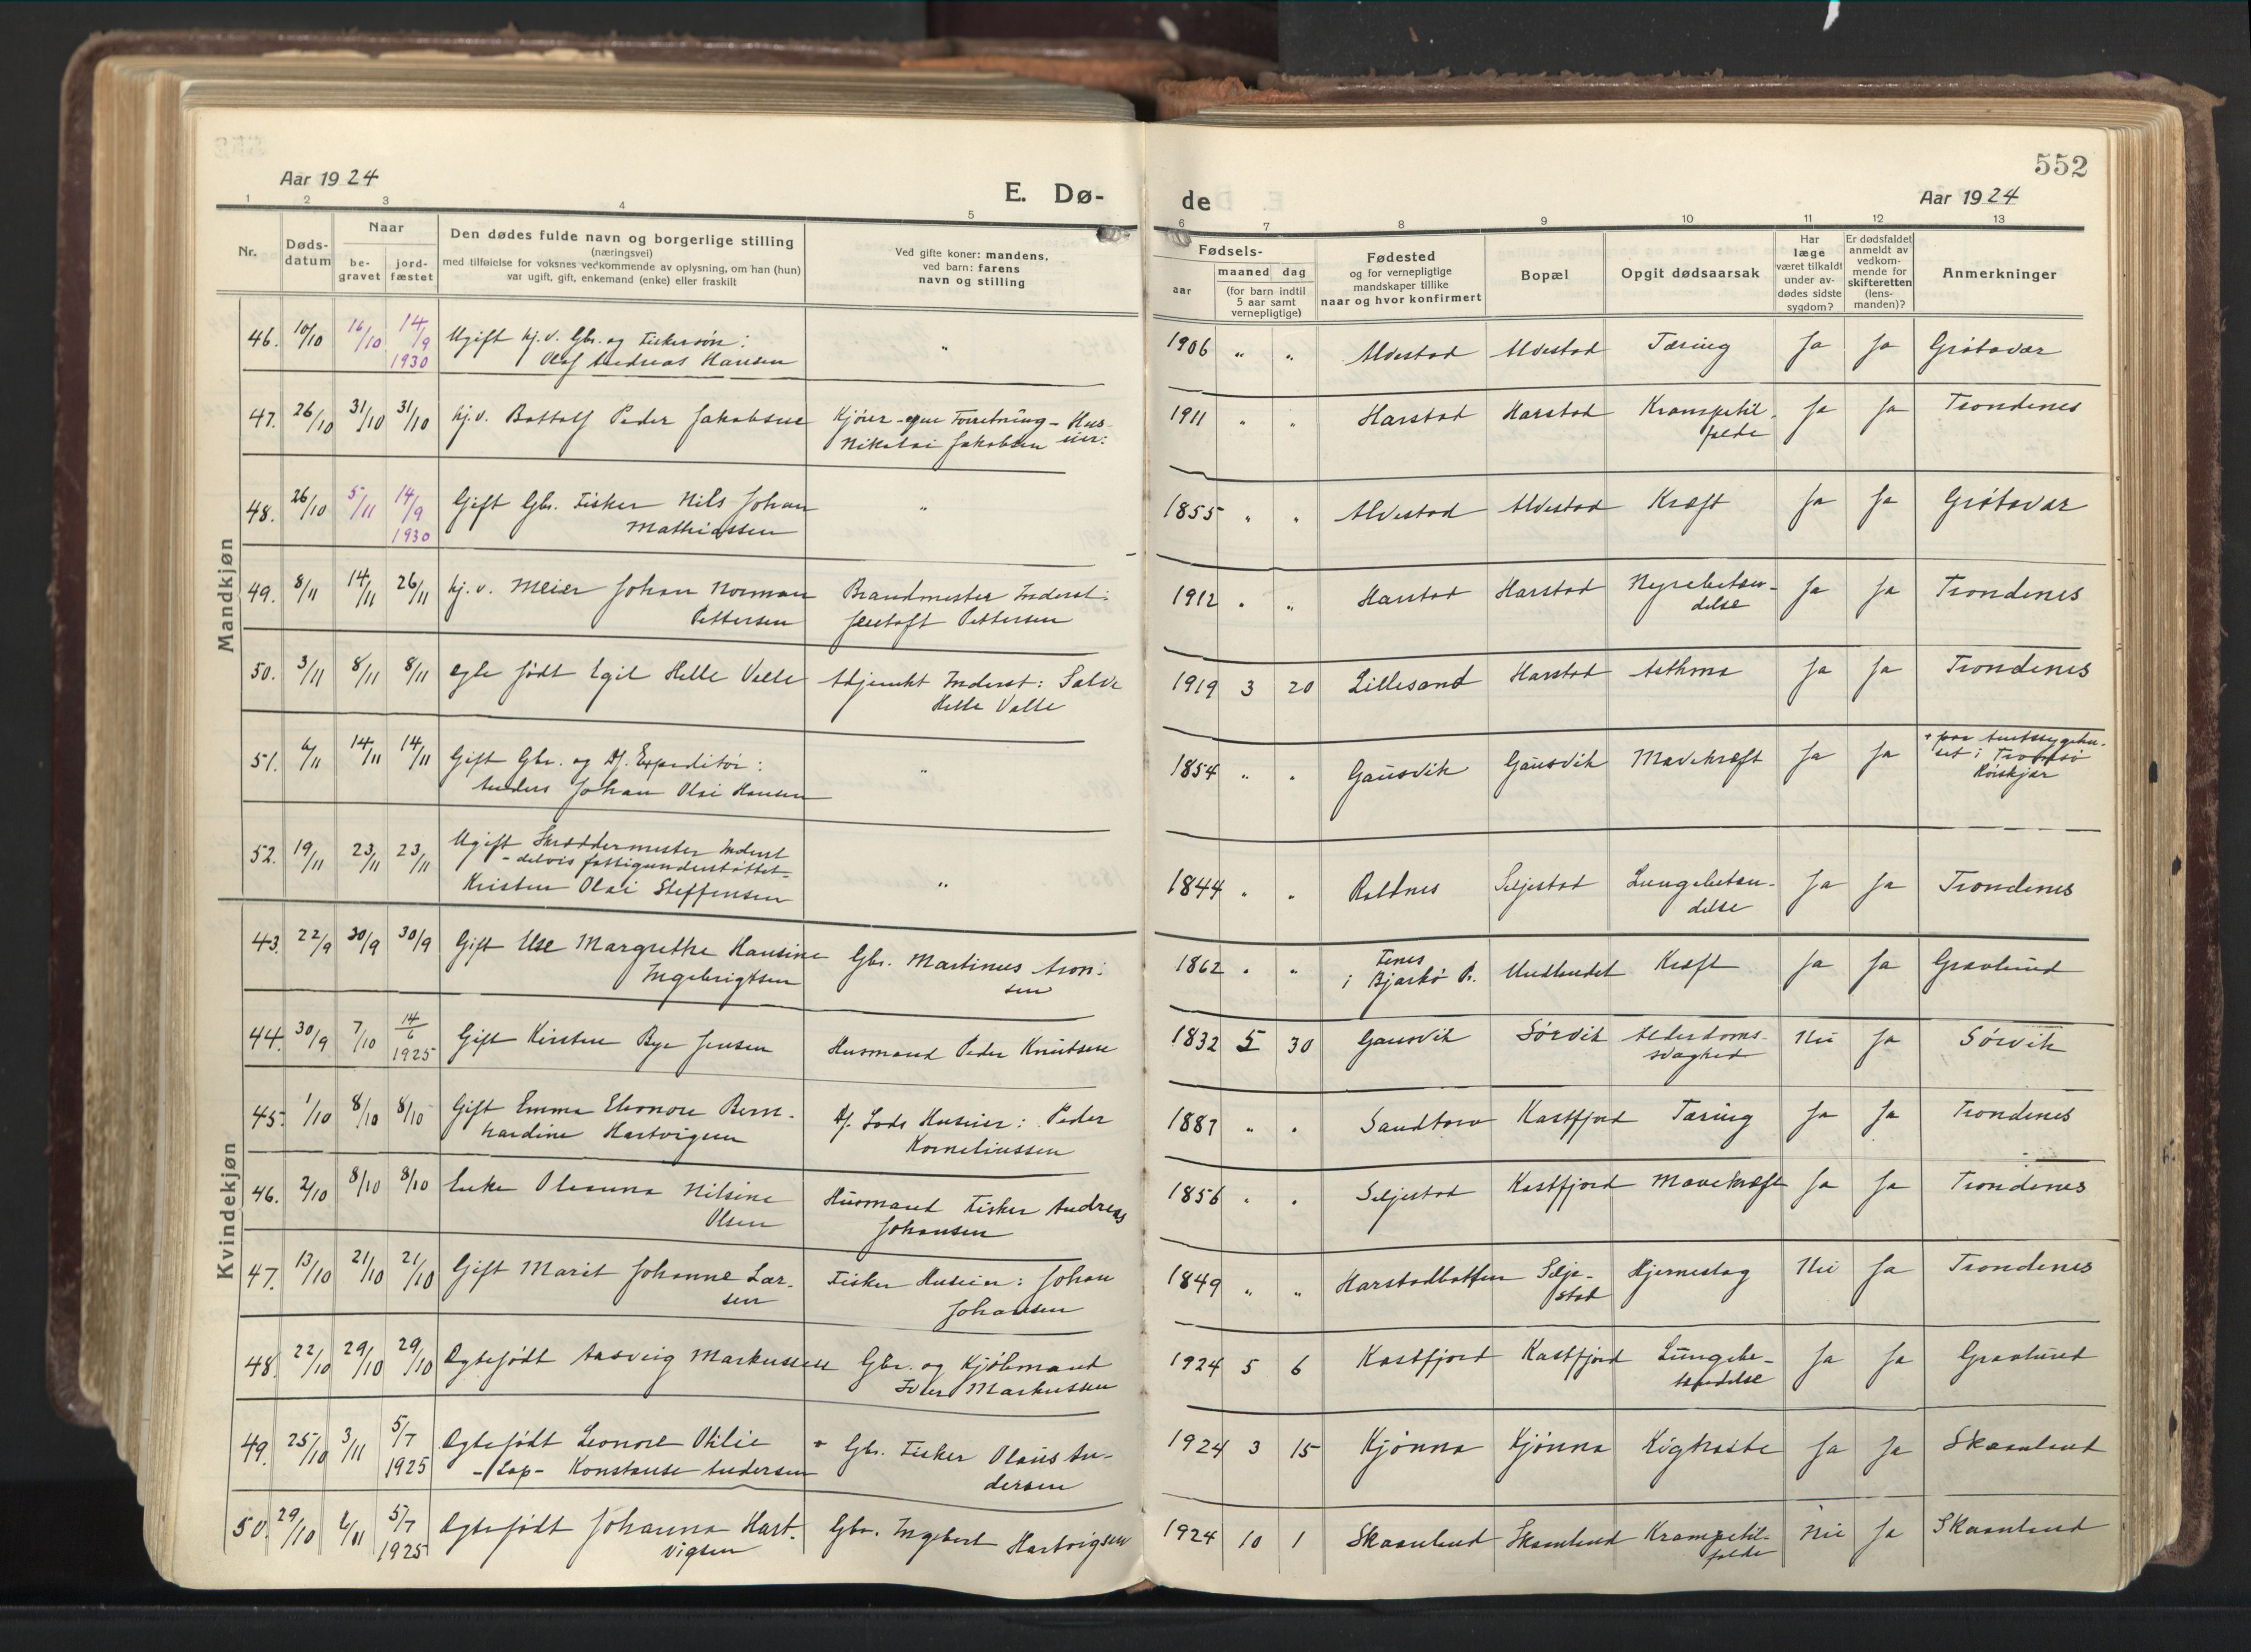 552
Aar 1924
E. Dø-
de
Aar 1924
1 2 3 4 5 6 7 8 9 10 11 12 13
Nr.
Døds-
datum
Naar
be-
gravet
jord-
fæstet
Den dødes fulde navn og borgerlige stilling
(næringsvei)
med tilføielse for voksnes vedkommende av oplysning, om han (hun)
var ugift, gift, enkemand (enke) eller fraskilt
Ved gifte koner: mandens,
ved barn: farens
navn og stilling
Fødsels-
aar
maaned dag
(for barn indtil
5 aar samt
vernepligtige)
Fødested
og for vernepligtige
mandskaper tillike
naar og hvor konfirmert
Bopæl
Opgit dødsaarsak
Har
læge
været tilkaldt
under av-
dødes sidste
sygdom?
Er dødsfaldet
anmeldt av
vedkom-
mende for
skifteretten
(lens-
manden)?
Anmerkninger
Mandkjøn
46. 10/10 16/10 14/9 1930 Ugift hj.v. Gbr. og Fiskersøn: " 1906 " " Alvestad Alvestad Tæring Ja Ja Grøtavær
Olaf Andreas Hansen
47. 26/10 31/10 31/10 hj.v. Bottolf Peder Jakobsen Kjører - egen Forretning - Hus- 1911 " " Harstad Harstad Krampetil- Ja Ja Trondenes
Nikolai Jakobsen eier: felde
48. 26/10 5/11 14/9 1930 Gift Gbr. Fisker Nils Johan " 1855 " " Alvestad Alvestad Kræft Ja Ja Grøtavær
Mathiassen
49. 8/11 14/11 26/11 hj.v. Meier Johan Norman Brandmester Inderst: 1912 " " Harstad Harstad Nyrebetæn- Ja Ja Trondenes
Pettersen Pettersen delse
50. 3/11 8/11 8/11 født Egil Helle Valle Adjunkt Inderst: Salve 1919 3 20 Lillesand Harstad Asthma Ja Ja Trondenes
Helle Valle
51. 6/11 14/11 14/11 Gift Gbr. og Df. Expeditør: " 1854 " " Gausvik Gausvik Mavekræft Ja Ja + paa Amtssygehu-
Anders Johan Olai Hansen set i Tromsø
Röiskjær
52. 19/11 23/11 23/11 Ugift Skræddermester Inderst
- delvis fattigunderstøttet -
Kristen Olai Steffensen " 1844 " " Seljestad Lungebetæn- Ja Ja Trondenes
delse
Kvindekjøn
43. 22/9 30/9 30/9 Gift Else Margrethe Hansine Gbr. Martinus Aron- 1862 " " Fenes Undlandet Kræft Ja Ja Gravlund
Ingebrigtsen sen i Bjarkö P.
44. 30/9 7/10 14/6 1925 Gift Kirsten Bye Jensen Husmand Peder Knutsen 1832 5 30 Gausvik Sörvik Alderdoms- Nei Ja Sörvik
svaghed
45. 1/10 8/10 8/10 Gift Emma Eleonore Bern- Df. Lods Huseier: Peder 1887 " " Sandtorv Kastfjord Tæring Ja Ja Trondenes
hardine Hartvigsen Korneliussen
46. 2/10 8/10 8/10 Enke Oleanna Nilsine Husmand Fisker Andreas 1856 " " Seljestad Kastfjord Mavekræft Ja Ja Trondenes
Olsen Johansen
47. 13/10 21/10 21/10 Gift Marit Johanne Lar- Fisker Huseier: Johan 1849 " " Harstadbotten Selje- Hjerneslag Nei Ja Trondenes
sen Johansen stad
48. 22/10 29/10 29/10 Ægtefødt Aasveig Markussen Gbr. og Kjøbmand 1924 5 6 Kastfjord Kastfjord Lungebe- Ja Ja Gravlund
Markussen tændelse
49. 25/10 3/11 5/7 1925 Ægtefødt Leonore Otilie + Gbr. Fisker Olaus An- 1924 3 15 Kjønna Kjønna Kighoste Ja Ja Skaanland
- Lap - Konstanse Andersen dersen
50. 29/10 2/11 5/7 1925 Ægtefødt Johanna Hart- Gbr. Ingebert Hartvigsen 1924 10 1 Skaanland Skaanland Krampetil- Nei Ja Skaanland
vigsen felde